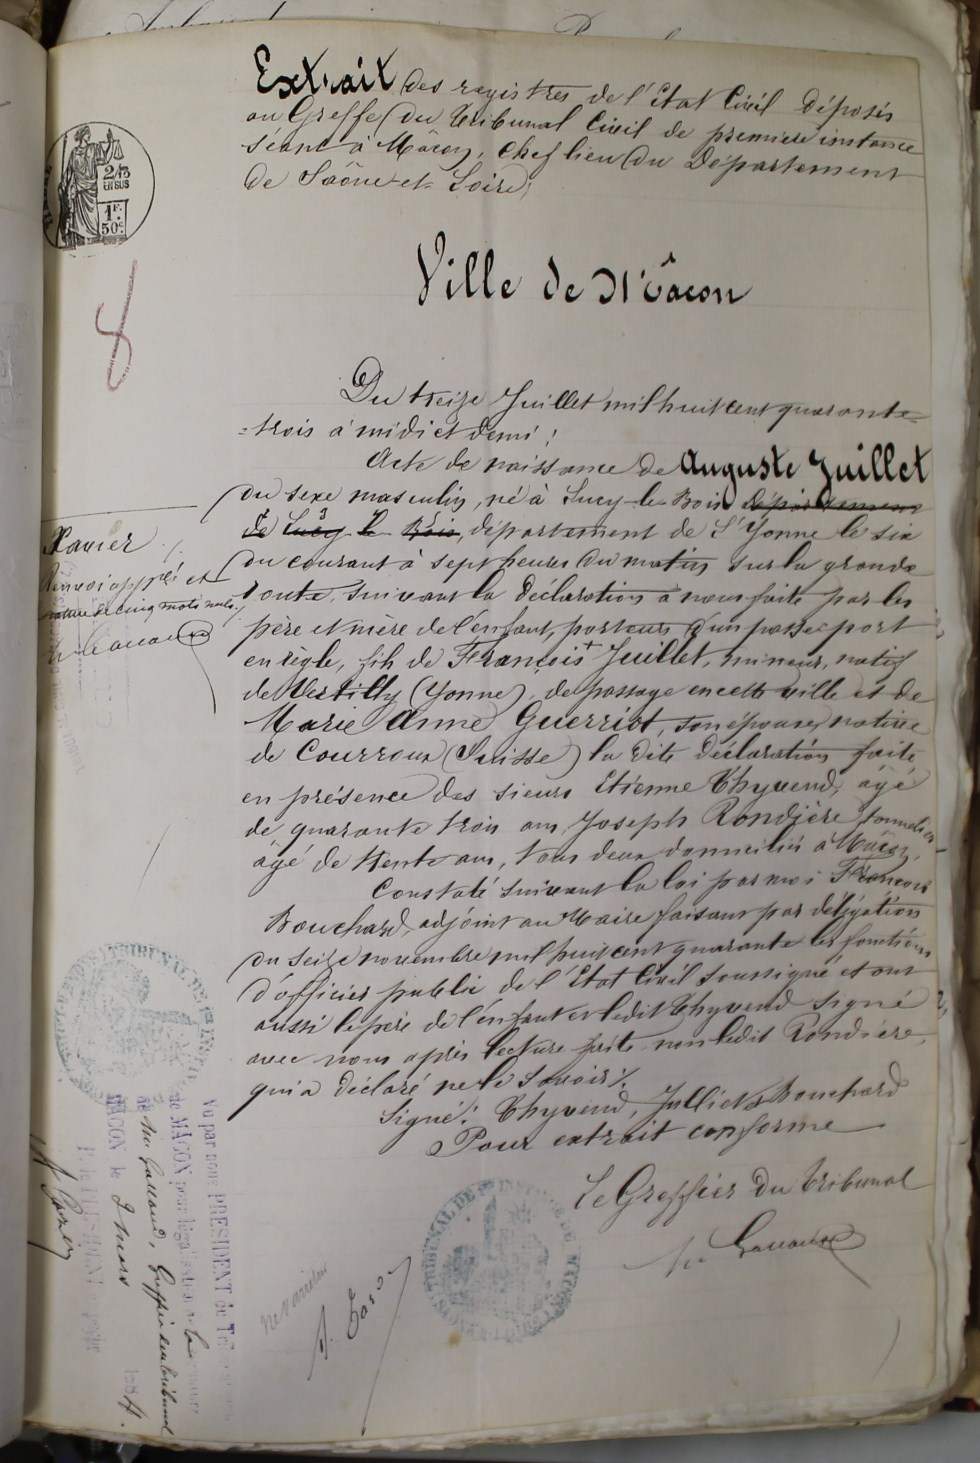 Extrait des registres de l'Etat Civil déposés
au Greffe du Tribunal Civil de première instance
séant à Mâcon, chef lieu du Département
de Saône et Loire,
2/10
EN SUS
1F.
50c
8
Ville de Mâcon
Du treize Juillet mil huit cent quarante
=trois à midi et demi!
Acte de naissance de Auguste Juillet
du sexe masculin, né à Lucy-le-Bois département
de Lucy le Bois, département de l'Yonne le six
du courant à sept heures du matin sur la grande
route, suivant la déclaration à nous faite par les
père et mère de l'enfant, porteurs d'un passeport
en règle, fils de François + Juillet, mineur, natif
de Vertilly (Yonne), de passage en cette ville et de
Marie Anne Guerriot, son épouse, native
de Courroux (Suisse) la dite déclaration faite
en présence des sieurs Etienne Thyvend, âgé
de quarante trois ans, Joseph Rondière, tonnelier
âgé de trente ans, tous deux domiciliés à Mâcon,
Constaté suivant la loi par moi François
Bouchard, adjoint au Maire faisant par délégation
du seize novembre mil huit cent quarante les fonctions
d'officier public de l'Etat Civil soussigné et ont
aussi le père de l'enfant et ledit Thyvend signé
avec nous après lecture faite non ledit Rondière,
qui a déclaré ne le savoir ./.
Signé: Thyvend, Julliet & Bouchard
Pour extrait conforme
Le Greffier du Tribunal
+ Xavier
Renvoi app.vé et
rature de cinq mots nuls
Vu par nous PRESIDENT du
de MACON pour légalisation
de Mr Greffier du tribunal
MACON le 2 mars 1884.
P. le PRESIDENT
TRIBUNAL DE 1re INSTANCE DE MACON